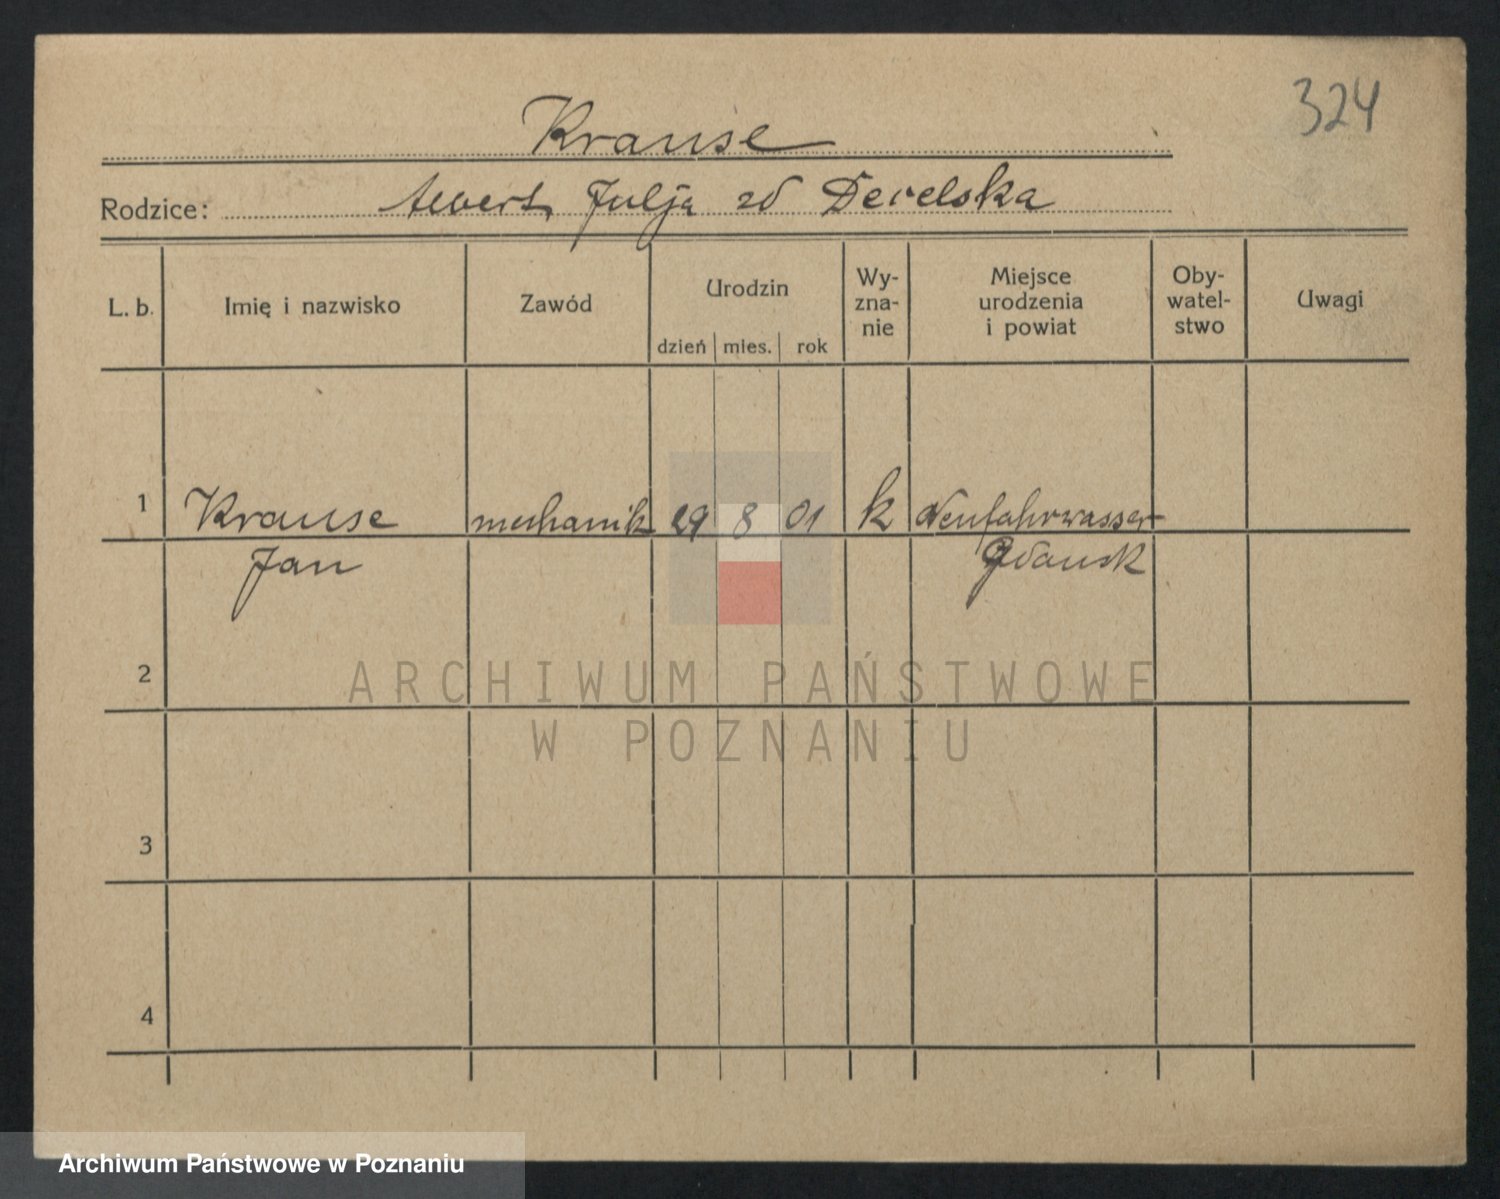 324
Krause
Rodzice: Albert, Julja zd Derelska
L. b. Imię i nazwisko Zawód Urodzin dzień mies. rok Wy- zna- nie Miejsce urodzenia i powiat Oby- watel- stwo Uwagi
1 Krause mechanik 29 8 01 k Neufahrwasser
Jan Gdansk
2
ARCHIWUM PAŃSTWOWE
W POZNANIU
3
4
Archiwum Państwowe w Poznaniu